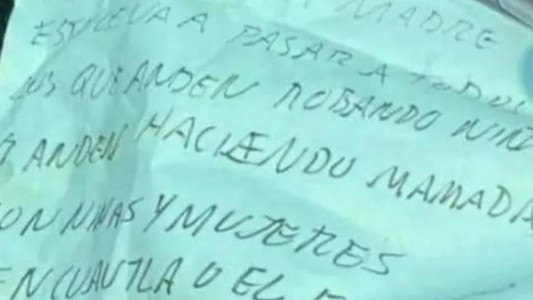 MADRE
ESTO LE VA A PASAR A TODOS
LOS QUE ANDEN ROBANDO NIÑ
O ANDEN HACIENDO MAMADA
ON NIÑAS Y MUJERES
EN CUAUTLA O EL